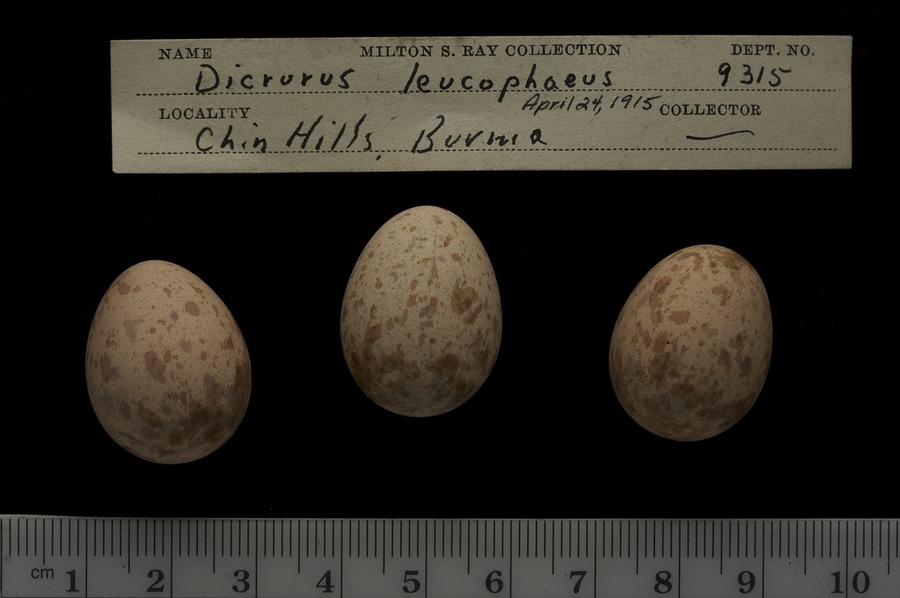 NAME MILTON S. RAY COLLECTION DEPT. NO.
Dicrurus leucophaeus 9315
April 24, 1915
LOCALITY COLLECTOR
Chin Hills, Burma
cm 1 2 3 4 5 6 7 8 9 10